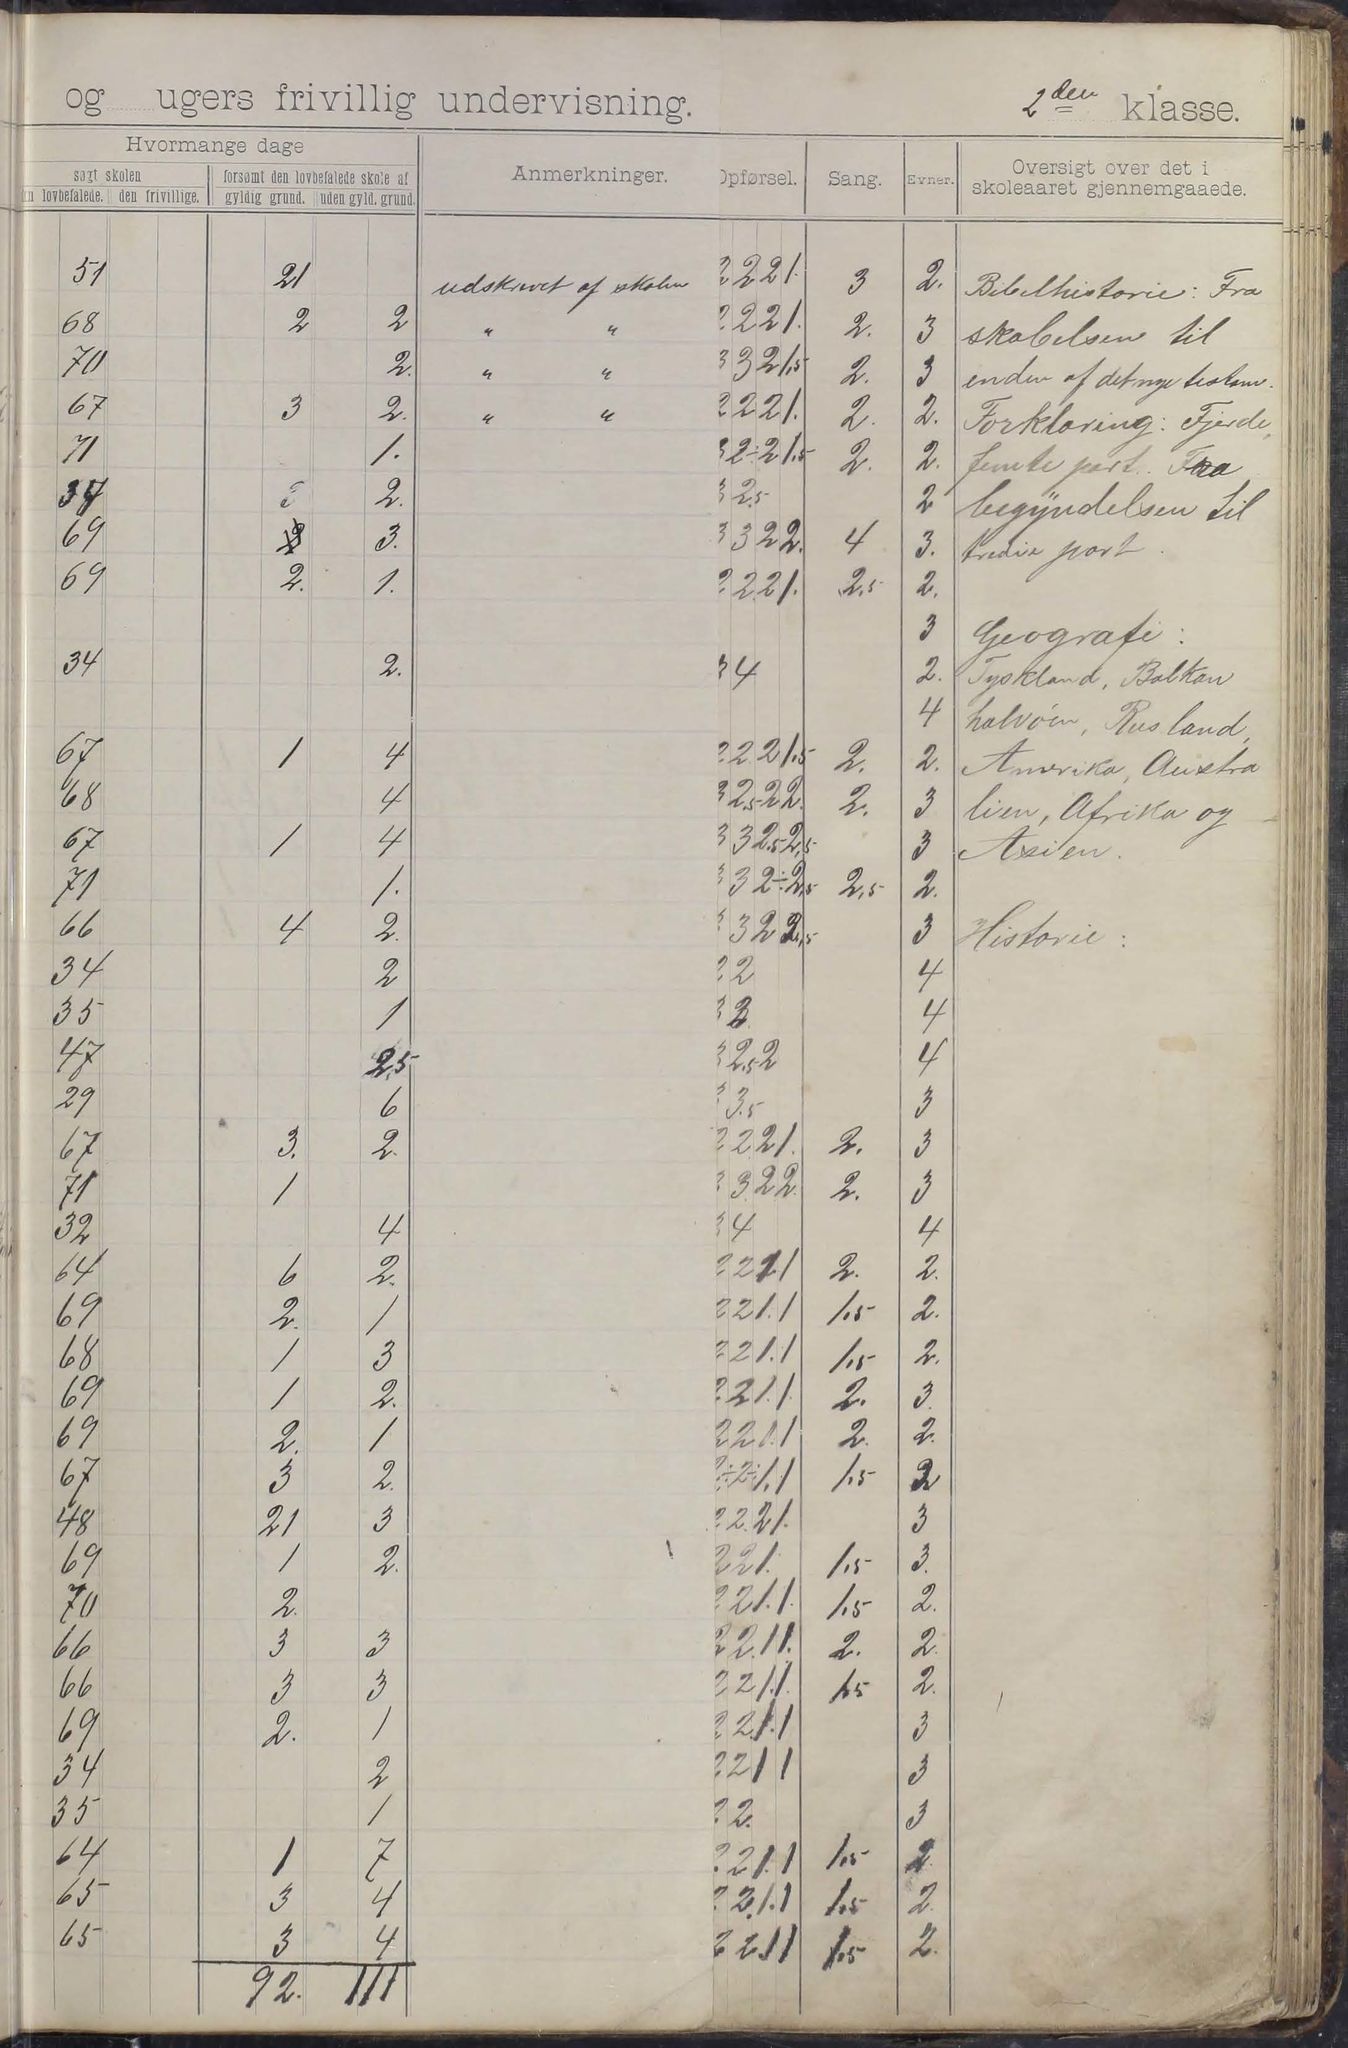 og ugers frivillig undervisning. 2den klasse.
Hvormange dage
søgt skolen
forsømt den lovbefalede skole af
n lovbefalede. den frivillige. gyldig grund. uden gyld. grund.
Anmerkninger. Opførsel. Sang. Evner. Oversigt over det i
skoleaaret gjennemgaaede.
51 21 udskrevet af skolen 2 2 2 1. 3 2. Bibelhistorie: Fra
68 2 2 " " 2 2 2 1. 2. 3 skabelsen til
70 2. " " 3 3 2 1,5 2. 3 enden af det nye testam.
67 3 2. " " 2 2 2 1. 2. 2. Forklaring: Fjerde,
71 1. 3 2÷ 2 1,5 2. 2. femte part. Fra
2. 3 2,5 2 begyndelsen til
69 3. 3 3 2 2. 4 3. tredie part.
69 2. 1. 2 2 2 1. 2,5 2.
3 Geografi:
34 2. 3 4 2. Tyskland, Balkan
4 halvøen, Rusland,
67 1 4 2 2 2 1,5 2. 2. Amerika, Austra
68 4 3 2,5 2 2. 2. 3 lien, Afrika og
67 1 4 3 3 2,5 2,5 3 Asien.
71 1. 3 3 2÷ 2,5 2,5 2.
66 4 2. 3 3 2 2,5 3 Historie:
34 2 2 2 4
35 1 3 4
47 2,5 3 2,5 2 4
29 6 3 3,5 3
67 3. 2. 2 2 2 1. 2. 3
71 1 3 3 2 2. 2. 3
32 4 3 4 4
64 6 2. 2 2 1 2. 2.
69 2. 1 2 2 1. 1 1,5 2.
68 1 3 2 2 1. 1 1,5 2.
69 1 2. 2 2 1. 1. 2. 3.
69 2. 1 2 2 1. 1 2. 2.
67 3 2. 2÷ 2÷ 1. 1 1,5 2
48 21 3 2 2. 2 1. 3
69 1 2. 2 2 1. 1,5 3.
70 2. 2 2 1. 1. 1,5 2.
66 3 3 2 2. 1 1. 2. 2.
66 3 3 2 2 1. 1. 1,5 2.
69 2. 1 2 2 1. 1 3
34 2 2 2 1 1 3
35 1 2 2. 3
64 1 7 2 2 1. 1 1,5 2.
65 3 4 2 2. 1. 1 1,5 2.
65 3 4 2 2 1 1 1,5 2.
92. 111